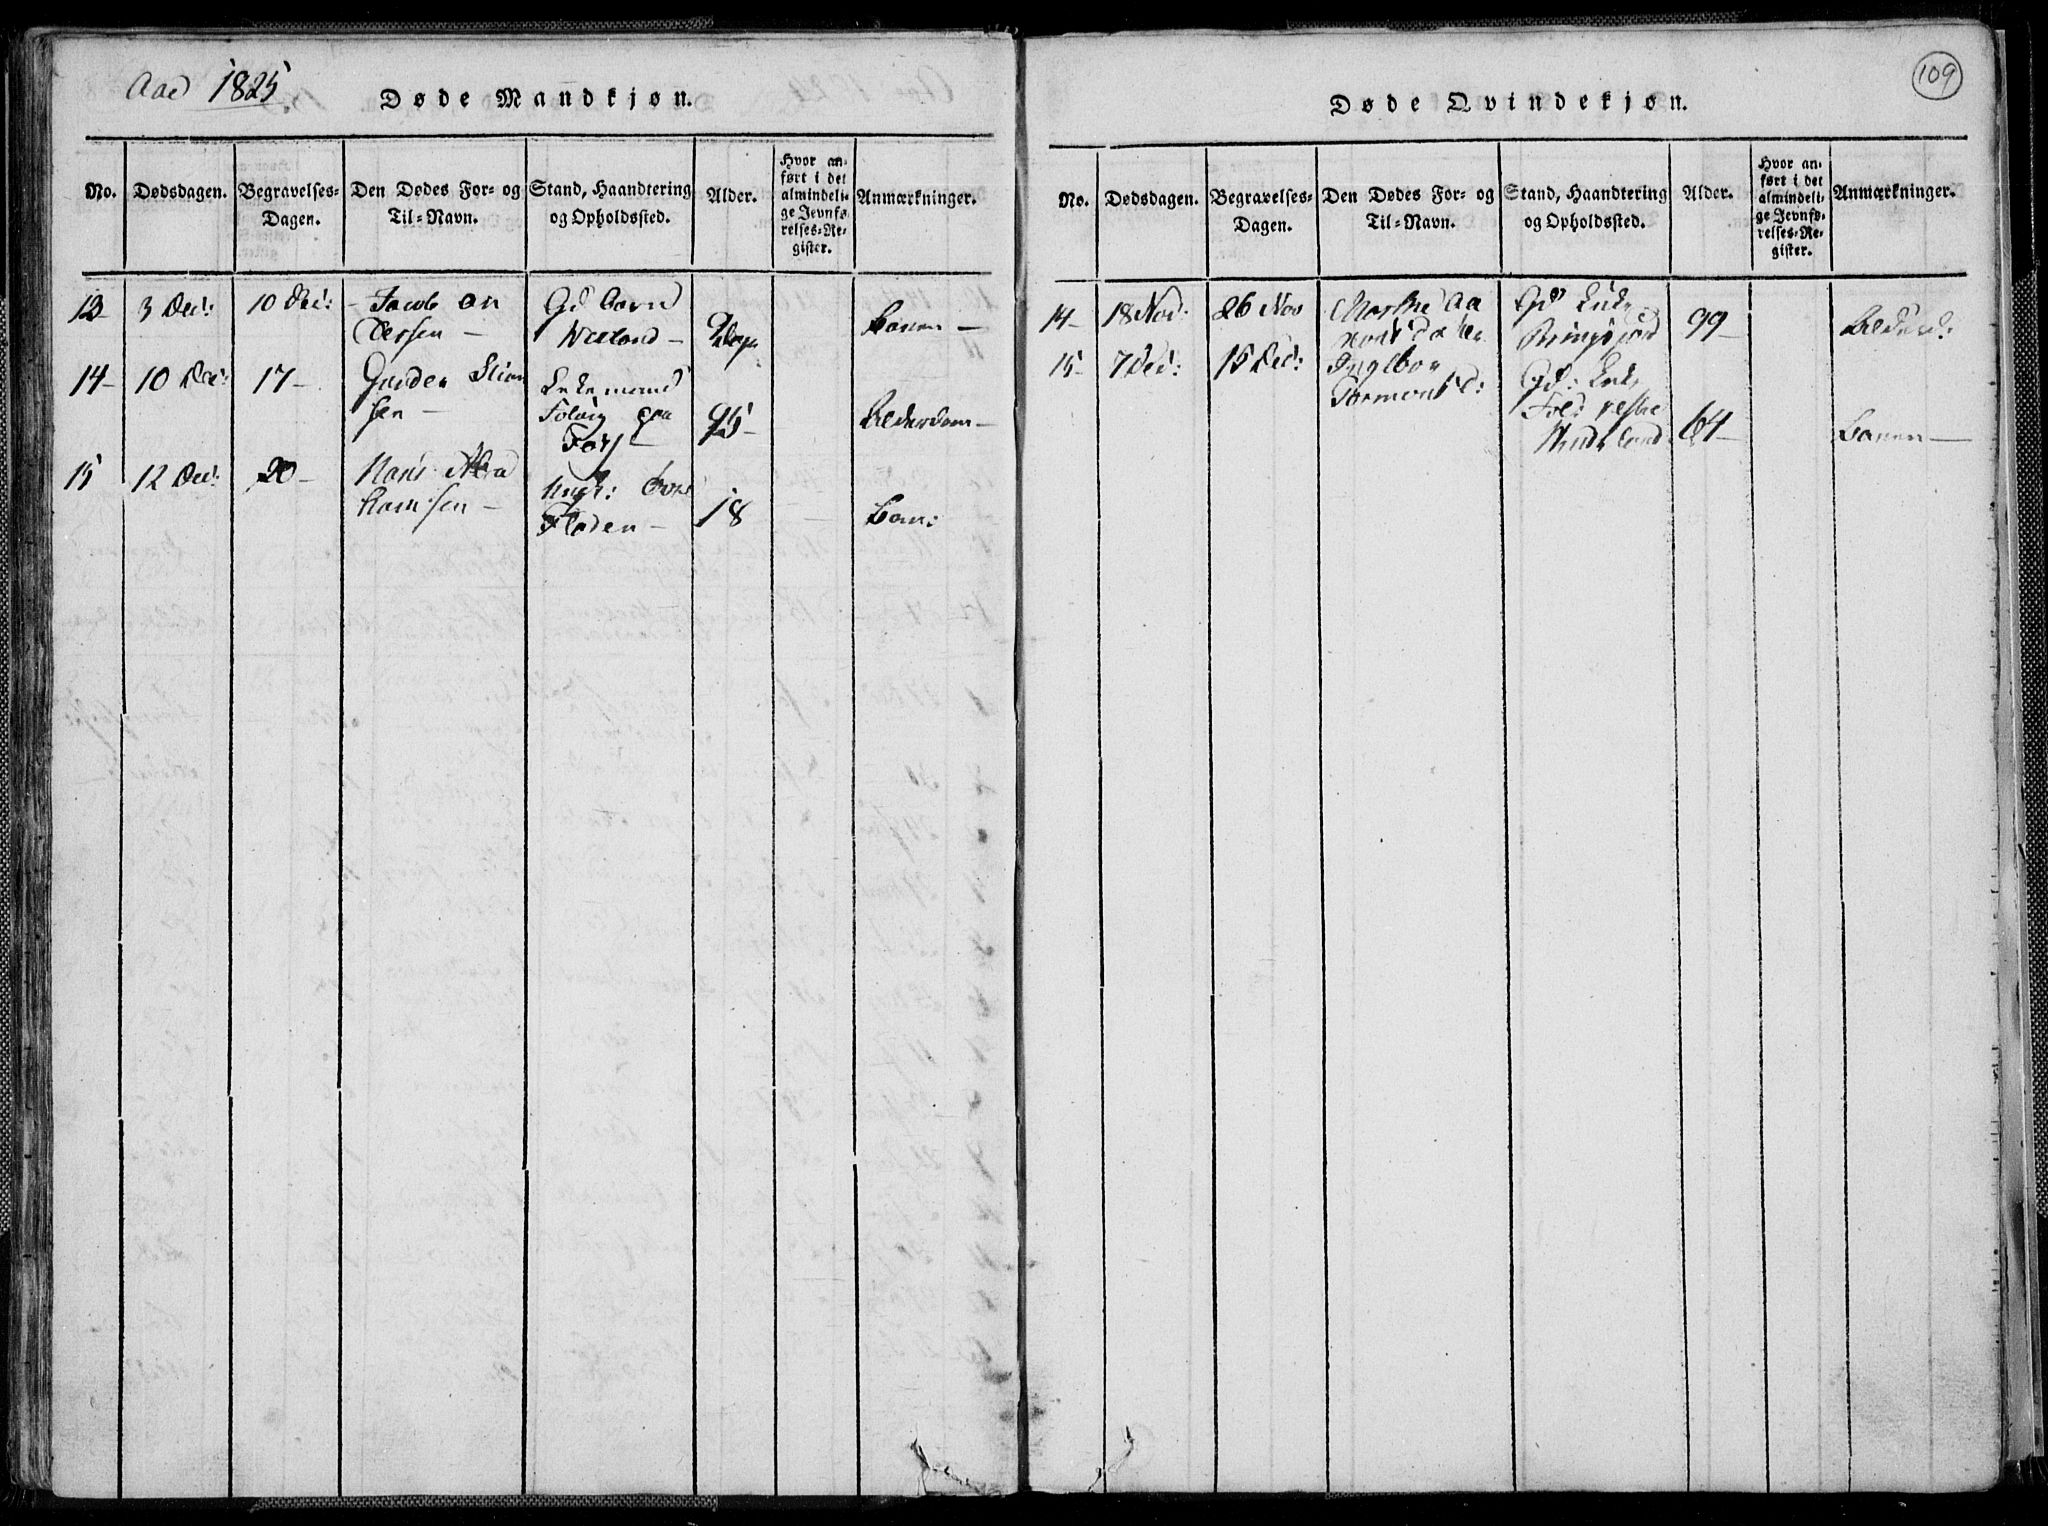 Aar 1825
Døde Mandkjøn.
No.
Dødsdagen.
Begravelses-
Dagen.
Den Dødes For- og
Til-Navn.
Stand, Haandtering
og Opholdssted.
Alder.
Hvor an-
ført i det
almindeli-
ge Jevnfø-
relses-Re-
gister.
Anmærkninger.
13
3 Dec:
10 Dec:
Jacob An
dersen
Gd Barn
Vestand
Samm
14
10 Dec:
17
Gunder Stian
sen
95
Alderdom
15
12 Dec:
20
Hans Abra
hamsen
Ungk:
Floden
18
Sam:
109
Døde Qvindekjøn.
No.
Dødsdagen.
Begravelses-
Dagen.
Den Dødes For- og
Til-Navn.
Stand, Haandtering
og Opholdssted.
Alder.
Hvor an-
ført i det
almindeli-
ge Jevnfø-
relses-Re-
gister.
Anmærkninger.
14
18 Nov:
26 Nov
Marthe Aa
nonsdatter
Gd Enke
Ringsjord
99
Alderd:
15
7 Dec:
15 Dec:
Ingebor
Tormonsd:
Gd: Enke
64
Samm